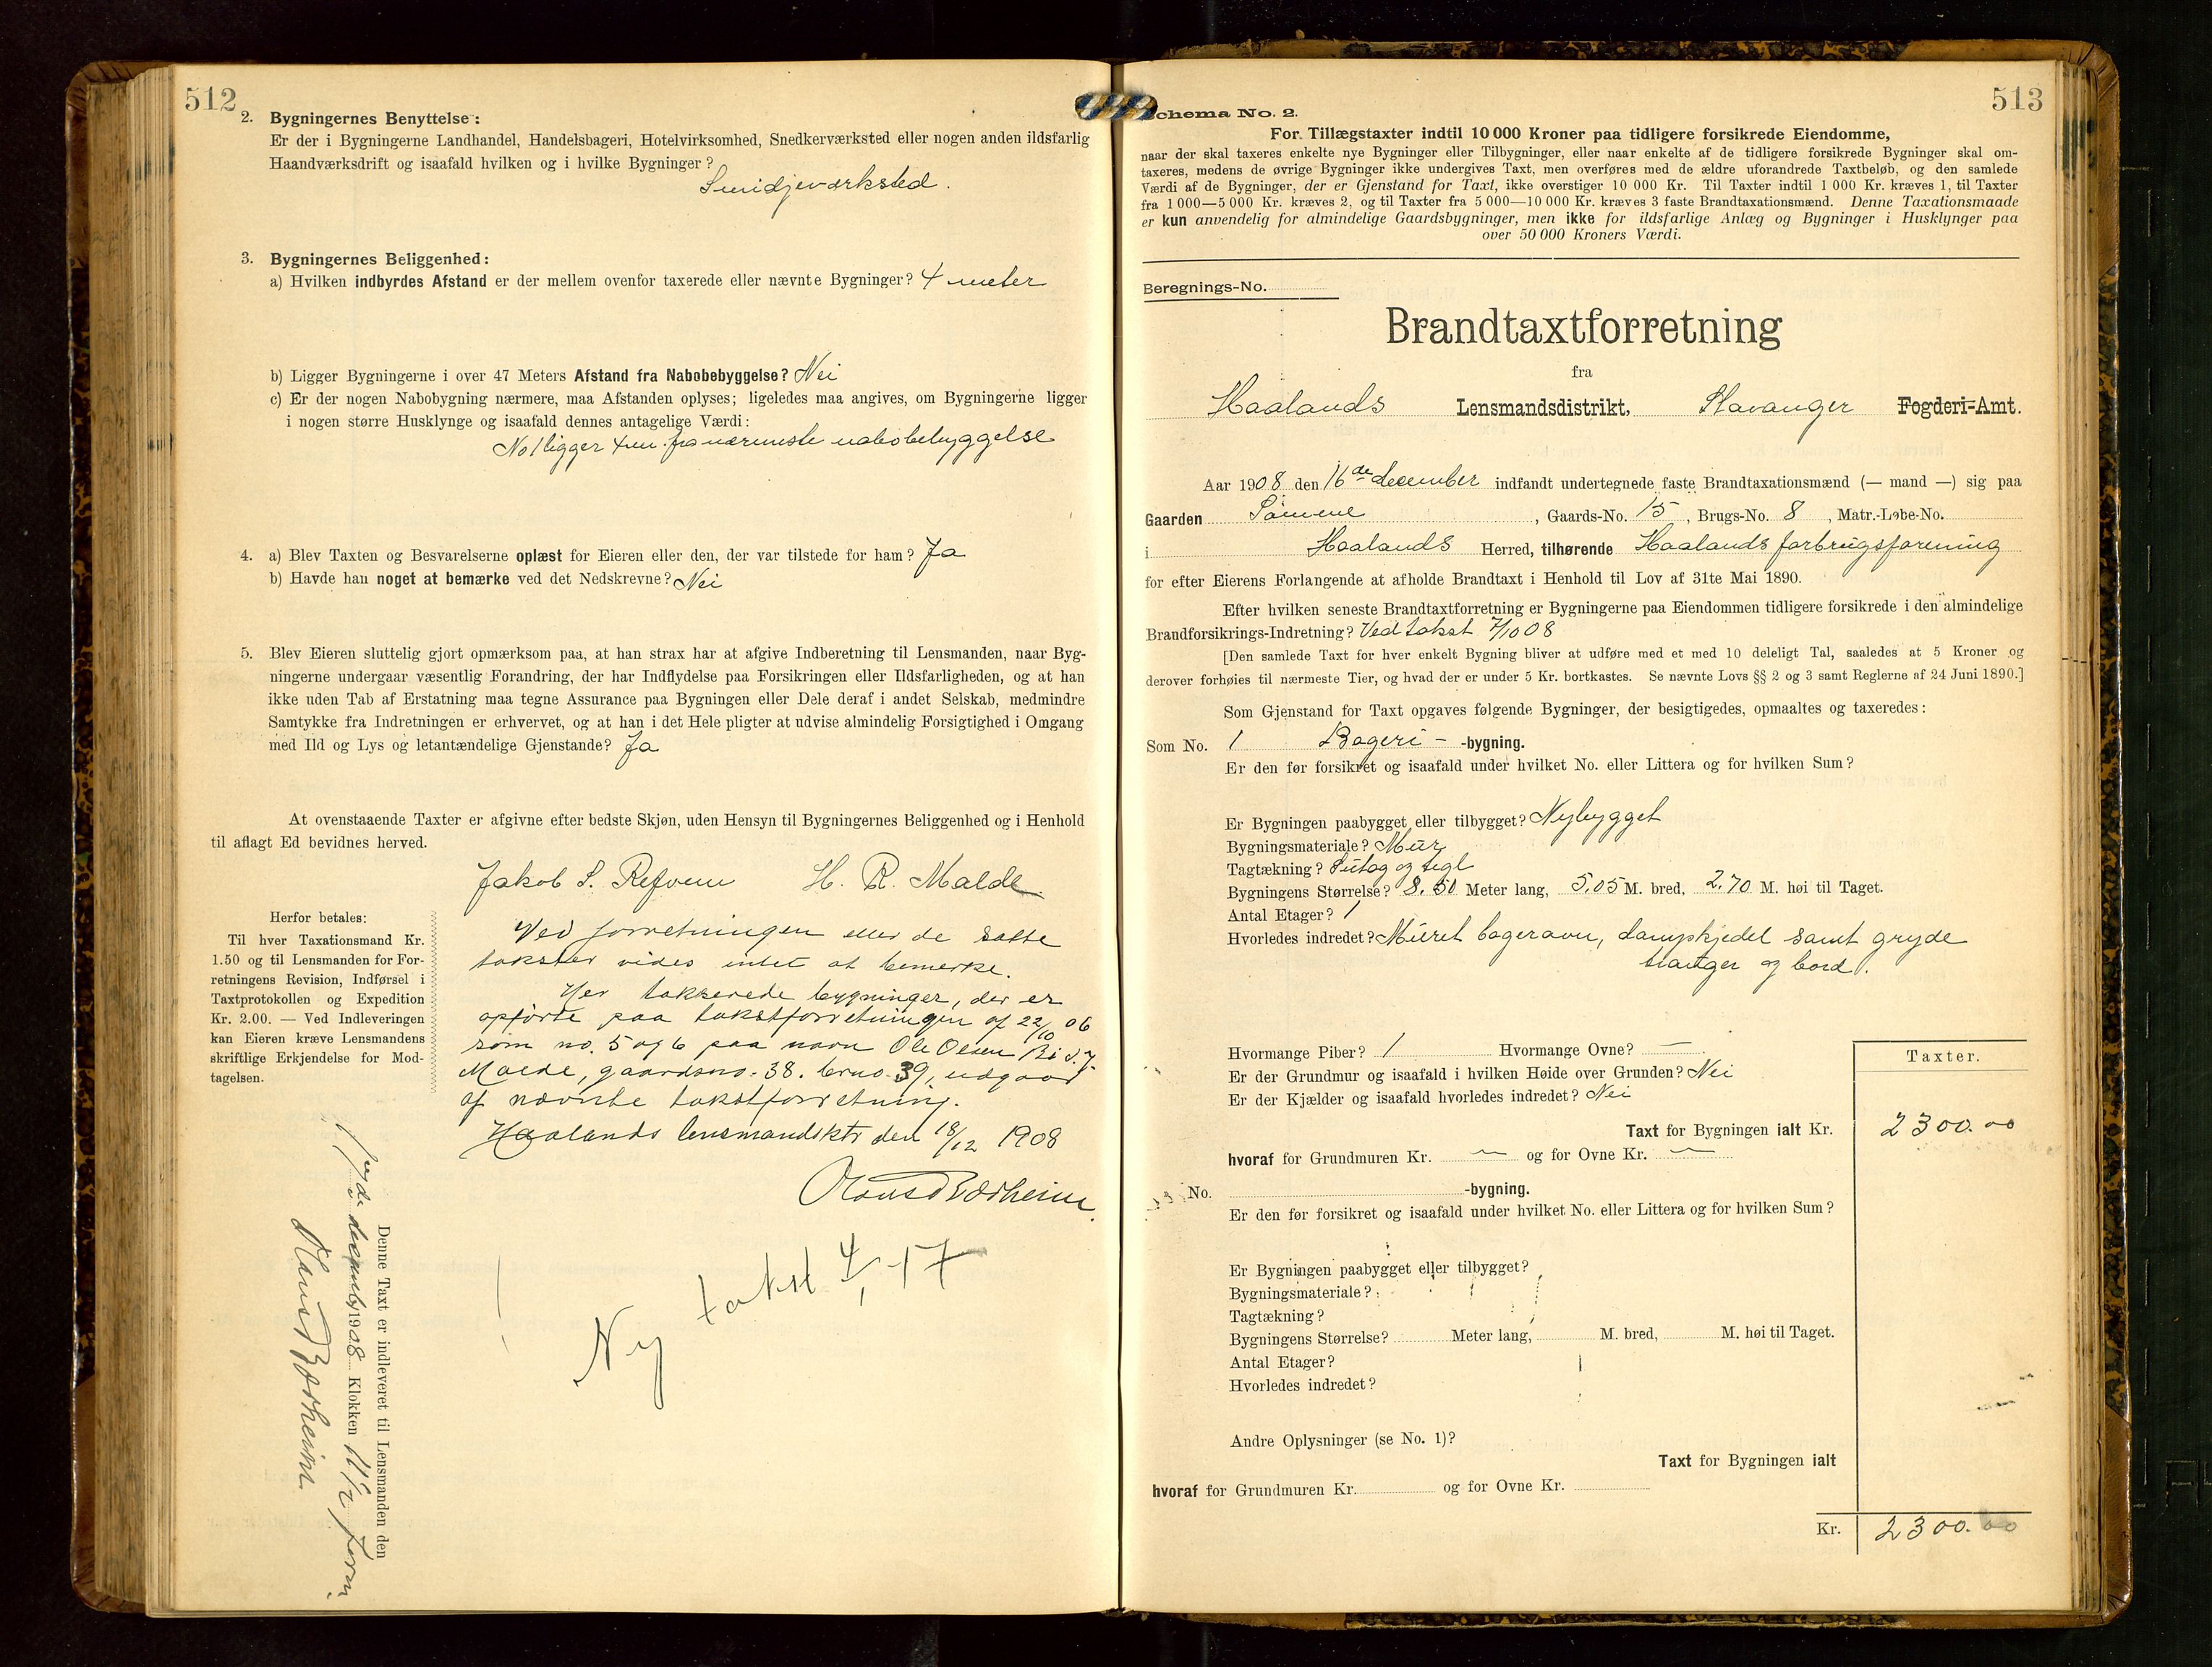 512
2. Bygningernes Benyttelse:
Er der i Bygningerne Landhandel, Handelsbageri, Hotelvirksomhed, Snedkerværksted eller nogen anden ildsfarlig
Haandværksdrift og isaafald hvilken og i hvilke Bygninger?
Smidjeværksted.
3. Bygningernes Beliggenhed:
a) Hvilken indbyrdes Afstand er der mellem ovenfor taxerede eller nævnte Bygninger? 4 meter
b) Ligger Bygningerne i over 47 Meters Afstand fra Nabobebyggelse? Nei
c) Er der nogen Nabobygning nærmere, maa Afstanden oplyses; ligeledes maa angives, om Bygningerne ligger
i nogen større Husklynge og isaafald dennes antagelige Værdi:
No 1 ligger 4 m. fra nærmeste nabobebyggelse
4. a) Blev Taxten og Besvarelserne oplæst for Eieren eller den, der var tilstede for ham? Ja
b) Havde han noget at bemærke ved det Nedskrevne? Nei
5. Blev Eieren sluttelig gjort opmærksom paa, at han strax har at afgive Indberetning til Lensmanden, naar Byg-
ningerne undergaar væsentlig Forandring, der har Indflydelse paa Forsikringen eller Ildsfarligheden, og at han
ikke uden Tab af Erstatning maa tegne Assurance paa Bygningen eller Dele deraf i andet Selskab, medmindre
Samtykke fra Indretningen er erhvervet, og at han i det Hele pligter at udvise almindelig Forsigtighed i Omgang
med Ild og Lys og letantændelige Gjenstande? Ja
At ovenstaaende Taxter er afgivne efter bedste Skjøn, uden Hensyn til Bygningernes Beliggenhed og i Henhold
til aflagt Ed bevidnes herved.
Jakob S. Refvem H. R. Malde
Herfor betales:
Til hver Taxationsmand Kr.
1.50 og til Lensmanden for For-
retningens Revision, Indførsel i
Taxtprotokollen og Expedition
Kr. 2.00. — Ved Indleveringen
kan Eieren kræve Lensmandens
skriftlige Erkjendelse for Mod-
tagelsen.
Ved forretningen eller de satte
takster vides intet at bemerke.
Her takserede bygninger, der er
opførte paa takstforretningen af 22/10 06
som no. 5 og 6 paa navn Ole Olsen
Malde, gaardsno. 38. brno. 39, udgaar
af nævnte takstforretning.
Haalands lensmandsktr den 18/12 1908
Denne Taxt er indleveret til Lensmanden den
december 1908 Klokken 11 1/2 Form.
Ny takst 4/1-17
513
Schema No. 2.
For Tillægstaxter indtil 10 000 Kroner paa tidligere forsikrede Eiendomme,
naar der skal taxeres enkelte nye Bygninger eller Tilbygninger, eller naar enkelte af de tidligere forsikrede Bygninger skal om-
taxeres, medens de øvrige Bygninger ikke undergives Taxt, men overføres med de ældre uforandrede Taxtbeløb, og den samlede
Værdi af de Bygninger, der er Gjenstand for Taxt, ikke overstiger 10 000 Kr. Til Taxter indtil 1 000 Kr. kræves 1, til Taxter
fra 1 000—5 000 Kr. kræves 2, og til Taxter fra 5 000—10 000 Kr. kræves 3 faste Brandtaxationsmænd. Denne Taxationsmaade
er kun anvendelig for almindelige Gaardsbygninger, men ikke for ildsfarlige Anlæg og Bygninger i Husklynger paa
over 50 000 Kroners Værdi.
Beregnings-No.
Brandtaxtforretning
fra
Haalands Lensmandsdistrikt, Stavanger Fogderi-Amt.
Aar 1908 den 16de december indfandt undertegnede faste Brandtaxationsmænd (— mand —) sig paa
Gaarden Sömme, Gaards-No. 15, Brugs-No. 8, Matr.-Løbe-No.
i Haalands Herred, tilhørende Haalands forbrugsforening
for efter Eierens Forlangende at afholde Brandtaxt i Henhold til Lov af 31te Mai 1890.
Efter hvilken seneste Brandtaxtforretning er Bygningerne paa Eiendommen tidligere forsikrede i den almindelige
Brandforsikrings-Indretning? Ved takst 7/10 08
[Den samlede Taxt for hver enkelt Bygning bliver at udføre med et med 10 deleligt Tal, saaledes at 5 Kroner og
derover forhøies til nærmeste Tier, og hvad der er under 5 Kr. bortkastes. Se nævnte Lovs §§ 2 og 3 samt Reglerne af 24 Juni 1890.]
Som Gjenstand for Taxt opgaves følgende Bygninger, der besigtigedes, opmaaltes og taxeredes:
Som No. 1 Bageri- -bygning.
Er den før forsikret og isaafald under hvilket No. eller Littera og for hvilken Sum?
Er Bygningen paabygget eller tilbygget? Nybygget
Bygningsmateriale? Mür
Tagtækning? Sutag og tegl
Bygningens Størrelse? 8.50 Meter lang, 5.05 M. bred, 2.70 M. høi til Taget.
Antal Etager? 1
Hvorledes indredet? Müret bagerovn, dampkjedel samt gryde
stanger og bord.
Hvormange Piber? 1 Hvormange Ovne? —
Er der Grundmur og isaafald i hvilken Høide over Grunden? Nei
Er der Kjælder og isaafald hvorledes indredet? Nei
Taxter.
Taxt for Bygningen ialt Kr. 2300.00
hvoraf for Grundmuren Kr. — og for Ovne Kr. —
No. -bygning.
Er den før forsikret og isaafald under hvilket No. eller Littera og for hvilken Sum?
Er Bygningen paabygget eller tilbygget?
Bygningsmateriale?
Tagtækning?
Bygningens Størrelse? Meter lang, M. bred, M. høi til Taget.
Antal Etager?
Hvorledes indredet?
Andre Oplysninger (se No. 1)?
Taxt for Bygningen ialt
hvoraf for Grundmuren Kr. og for Ovne Kr.
Kr. 2300.00